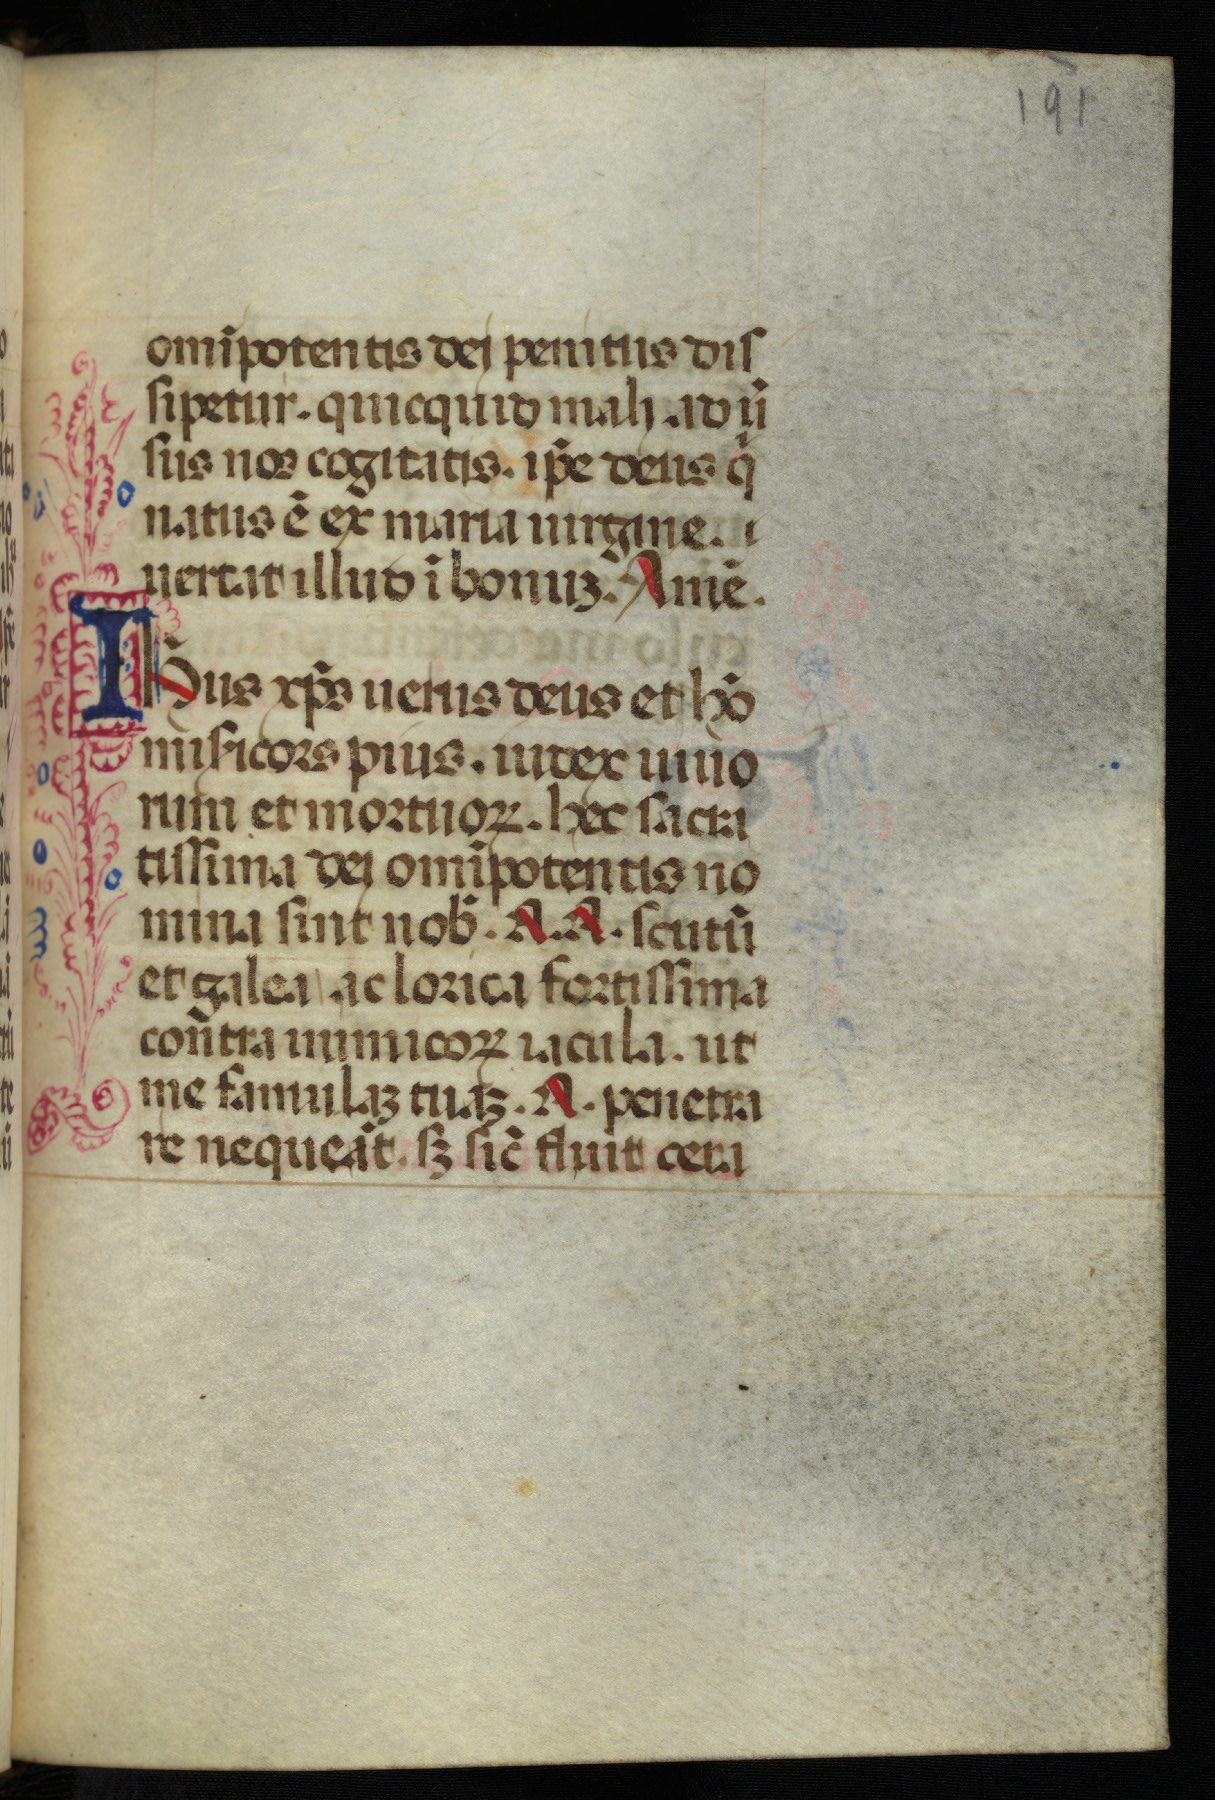 191
om̄ipotentis dej penitus dis
sipetur. quicquid malj. ad ū
sus nos cogitatis. ip̄e deus q̄
natus ē ex maria uirgine. i
uertat illud ī bonuꝫ. Amē.
Ihus xp̄s uerus deus et hō
misicors pius. iudex uiuo
rum et mortuoꝝ. hec sacra
tissima dej om̄ipotentis no
mina sint nob̄. A. A. scutū
et galea ac lorica fortissima
con̄tra inimicoꝝ iacula. ut
me famulaꝫ tuaꝫ. A. penetra
re nequeāt. sꝫ sic̄ fluit cera